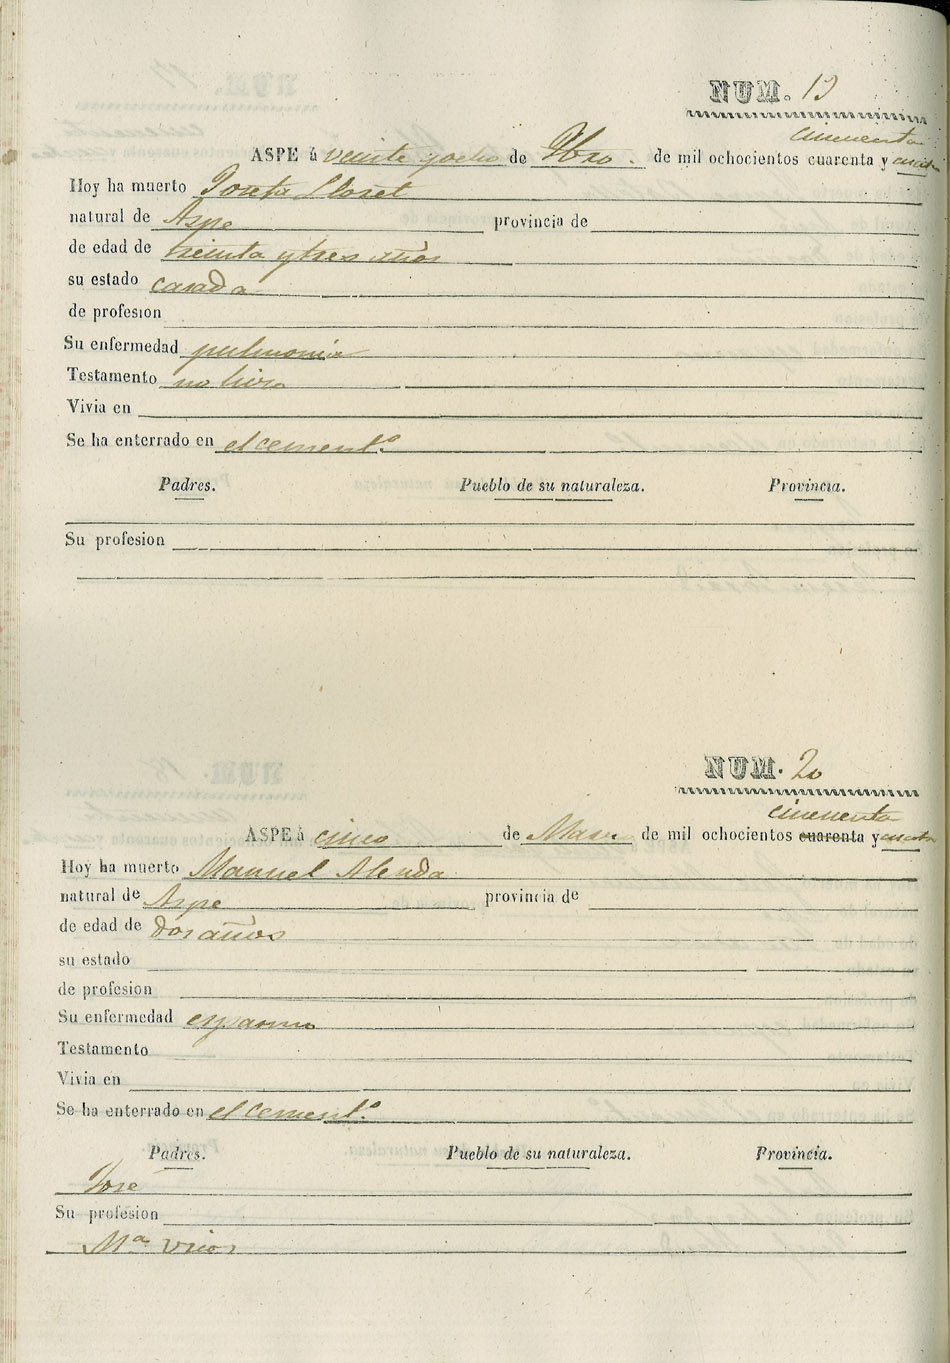 NUM. 19
cincuenta
ASPE á veinte y ocho de Fbro. de mil ochocientos cuarenta y cuatro
Hoy ha muerto Josefa Lloret
natural de Aspe provincia de
de edad de treinta y tres años
su estado casada
de profesion
Su enfermedad pulmonia
Testamento no hizo
Vivia en
Se ha enterrado en el cement.º
Padres. Pueblo de su naturaleza. Provincia.
Su profesion
NUM. 20
cincuenta
ASPE á cinco de Marzo de mil ochocientos cuarenta y cuatro
Hoy ha muerto Manuel Alenda
natural de Aspe provincia de
de edad de dos años
su estado
de profesion
Su enfermedad espasmo
Testamento
Vivia en
Se ha enterrado en el cement.º
Padres. Pueblo de su naturaleza. Provincia.
José
Su profesion
Mª